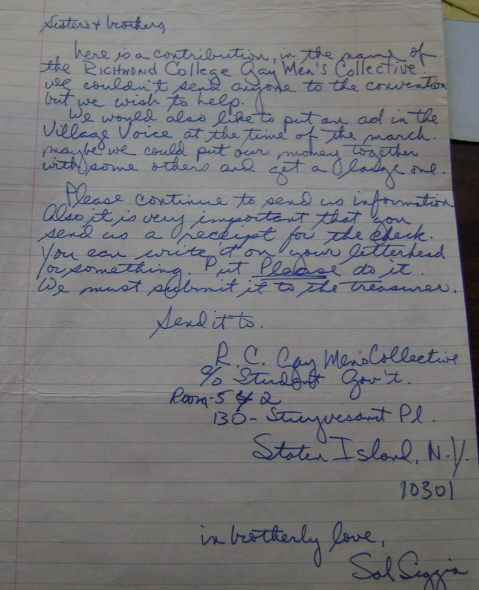 Sisters & brothers,
here is a contribution, in the name of
the RICHMOND College Gay Men's Collective.
we couldn't send anyone to the convention
but we wish to help.
We would also like to put an ad in the
Village Voice at the time of the march.
maybe we could put our money together
with some others and get a large one.
Please continue to send us information.
Also it is very important that you
send us a receipt for the check.
You can write it on your letterhead
or something. Put Please do it.
We must submit it to the treasurer.
Send it to.
R. C. Gay Men's Collective
c/o Student Gov't.
Room-542
130- Stuyvesant Pl.
Staten Island, N.Y.
10301
in brotherly love,
Sal